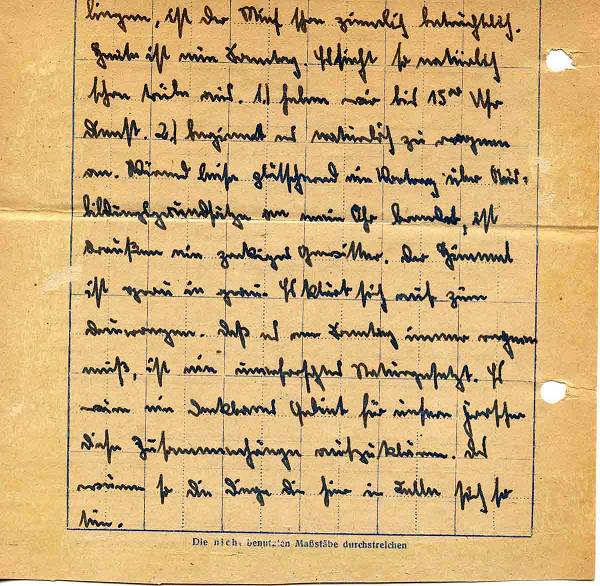 liegen, ist der Mief schon ziemlich beträchtlich.
Heute ist nun Sonntag. Es sieht so natürlich
schon trübe aus. 1.) haben wir bis 15⁰⁰ Uhr
Dienst. 2.) beginnt es natürlich zu regnen
an. Während leise plätschernd ein Vortrag über Aus-
bildungsgrundsätze an mein Ohr brandet, ist
draußen ein zackiges Gewitter. Der Himmel
ist grau in grau. Es klärt sich aus zum
Dauerregen. Daß es am Sonntag immer regnen
muß, ist ein unerforschtes Naturgesetz. Es
wäre ein dankbares Gebiet für unsere Forscher
diese Zusammenhänge aufzuklären. Das
wären so die Dinge die hier in sich so
tun.
Die nicht benutzten Maßstäbe durchstreichen